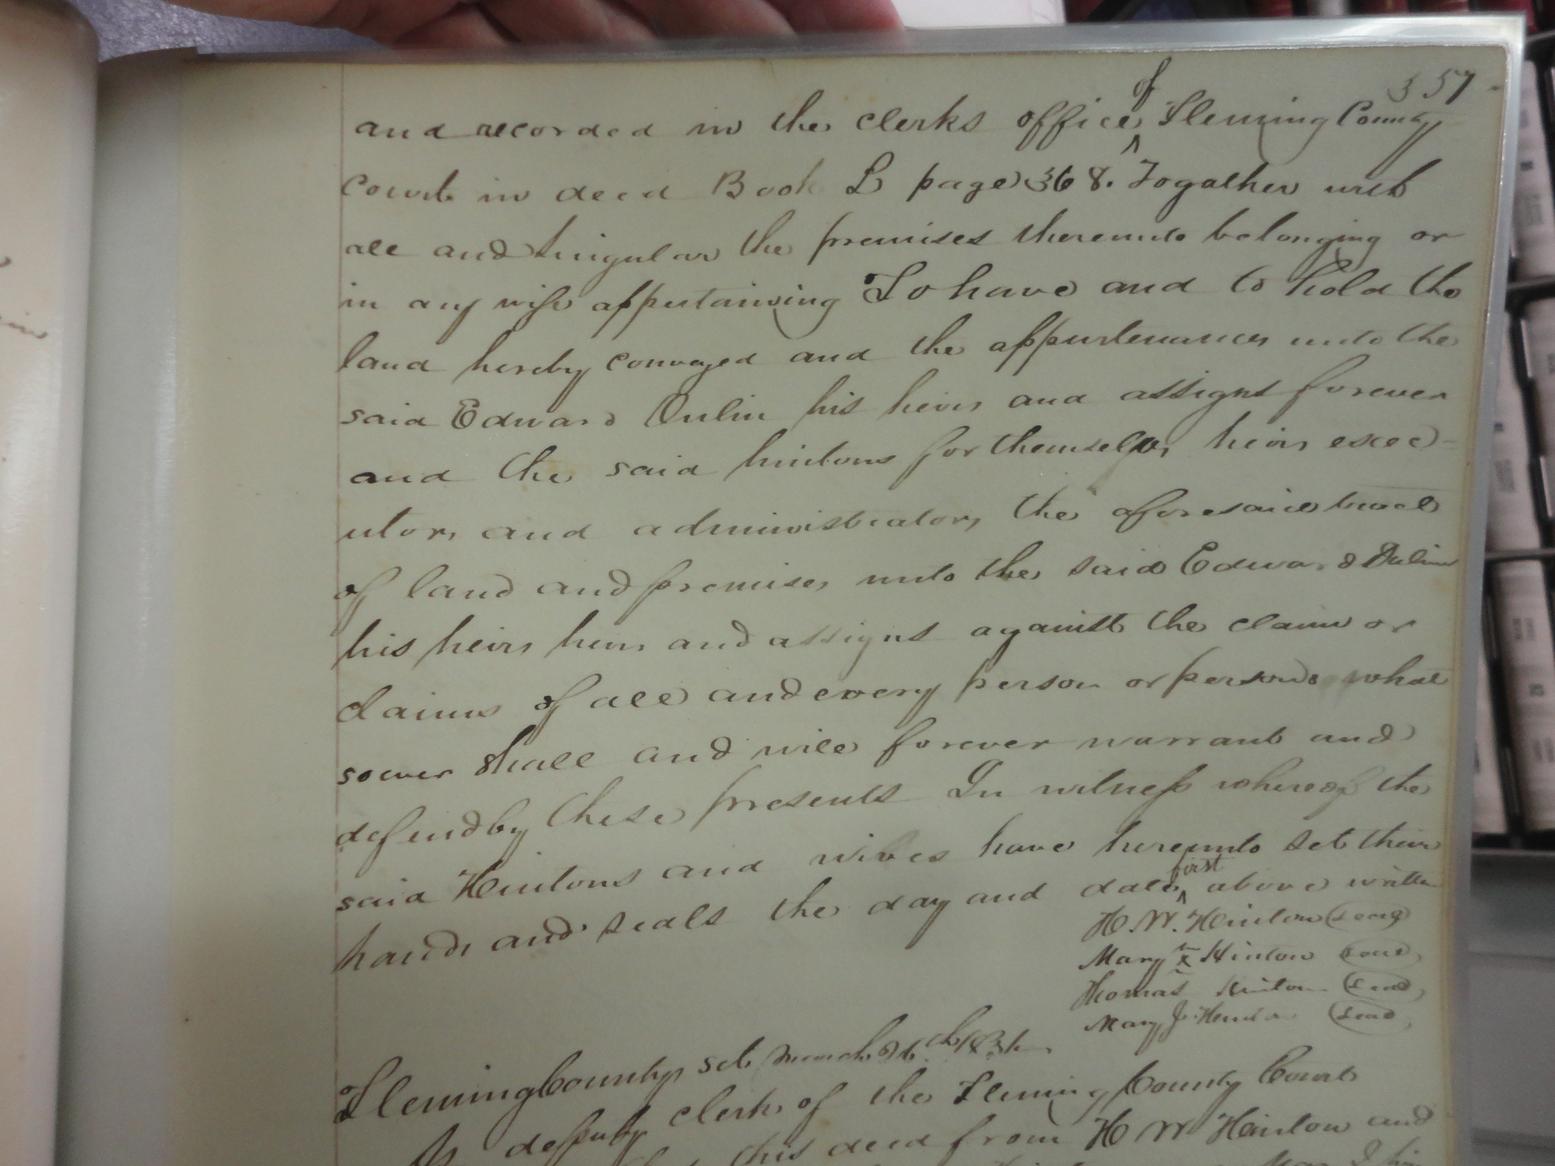 357
and recorded in the clerks office of Fleming County
Court in deed Book L page 368. Together with
all and singular the premises thereunto belonging or
in any wise appertaining To have and to hold the
land hereby conveyed and the appurtenances unto the
said Edward Dulin his heirs and assigns forever
and the said hintons for themselves, heirs exec=
utors and administrators the aforesaid tract
of land and premises unto the said Edward Dulin
his heirs heirs and assigns against the claim or
claims of all and every person or persons what
soever shall and will forever warrant and
defend by these presents In witness whereof the
said Hintons and wives have hereunto set their
hands and seals the day and date first above written
H. W. Hinton (seal)
Mary x Hinton (seal)
Thomas Hinton (seal)
Mary J. Hinton (seal)
Fleming County sct March
deputy clerk of the Fleming County Court
this deed from H W Hinton and